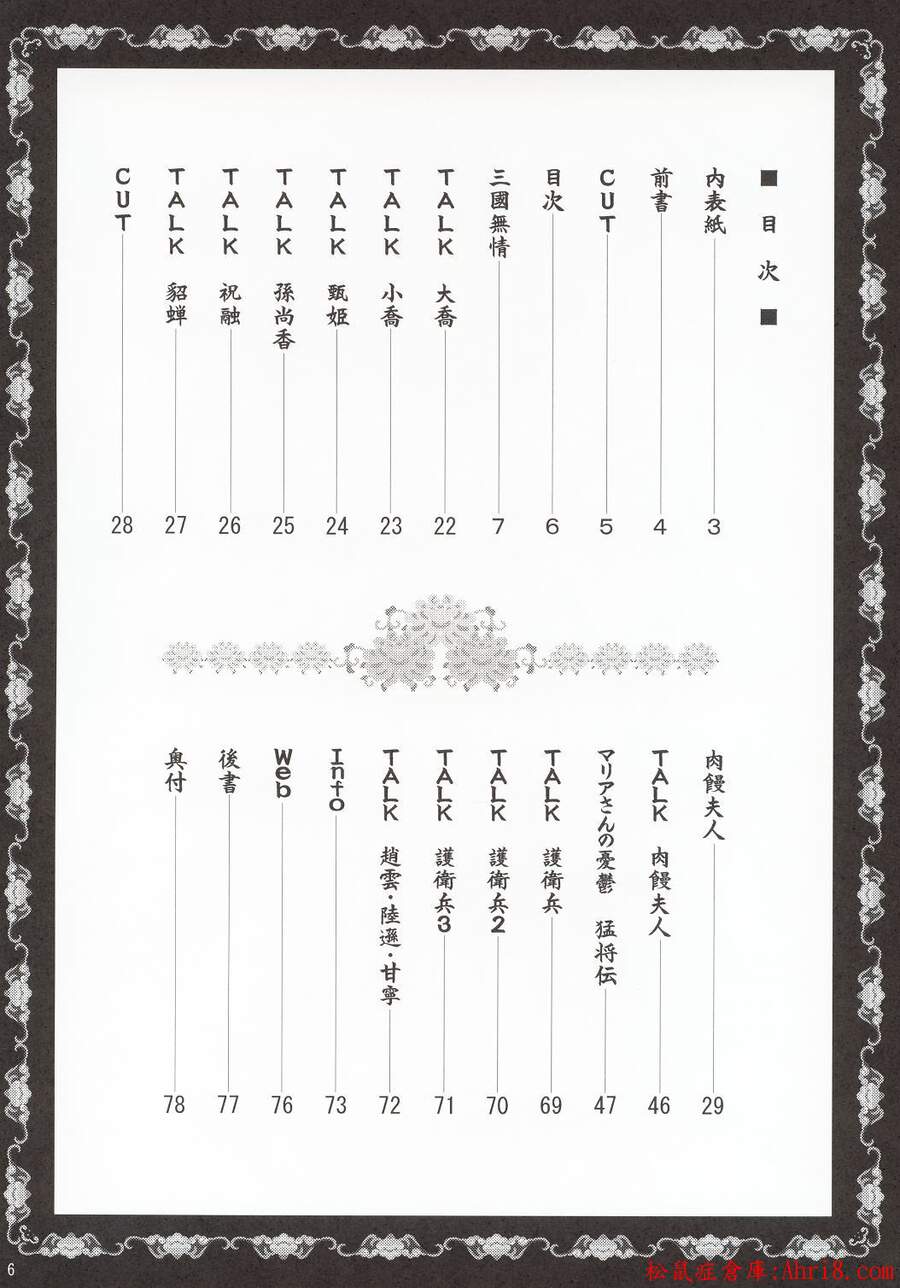 ■ 目次 ■
内表紙 3
前書 4
CUT 5
目次 6
三國無情 7
TALK 大喬 22
TALK 小喬 23
TALK 甄姫 24
TALK 孫尚香 25
TALK 祝融 26
TALK 貂蝉 27
CUT 28
肉饅夫人 29
TALK 肉饅夫人 46
マリアさんの憂鬱 猛将伝 47
TALK 護衛兵 69
TALK 護衛兵2 70
TALK 護衛兵3 71
TALK 趙雲・陸遜・甘寧 72
Info 73
Web 76
後書 77
奥付 78
6
松鼠症倉庫:Ahri8.com